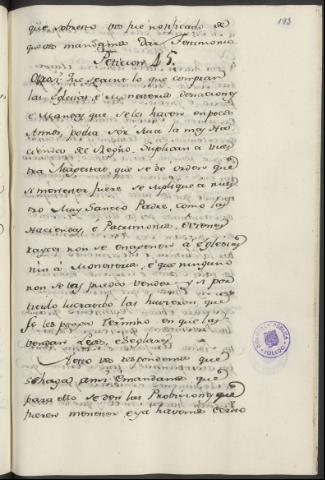 193
que sobresto vos fue notificado de
que vos mandamos dar Testimonio
Peticion 45.
Otrosi que segunt lo que compran
las Iglesias, é Monasterios donaciones
e Mandas que se les hacen en pocos
Años, podia ser suia la mas Ha-
cienda del Regno. Suplican a Vues-
tra Magestad, que se de orden que
si menester fuere se suplique a nues-
tro Muy Sancto Padre como las
Haciendas, é Patrimonios, é vienes
raices non se enagenen á Eglesias
nin á Monasterios, é que ninguno
non se les pueda vender y si por
titulo lucrativo las huvieren que
se les ponga Termino en que las
vendan Legos, é Seglares
A esto vos respondemos que
se haga ansi é mandamos que
para ello se den las Provisiones que
fueren menester e ya havemos escrito
BIBLIOTECA PUBLICA
TOLEDO